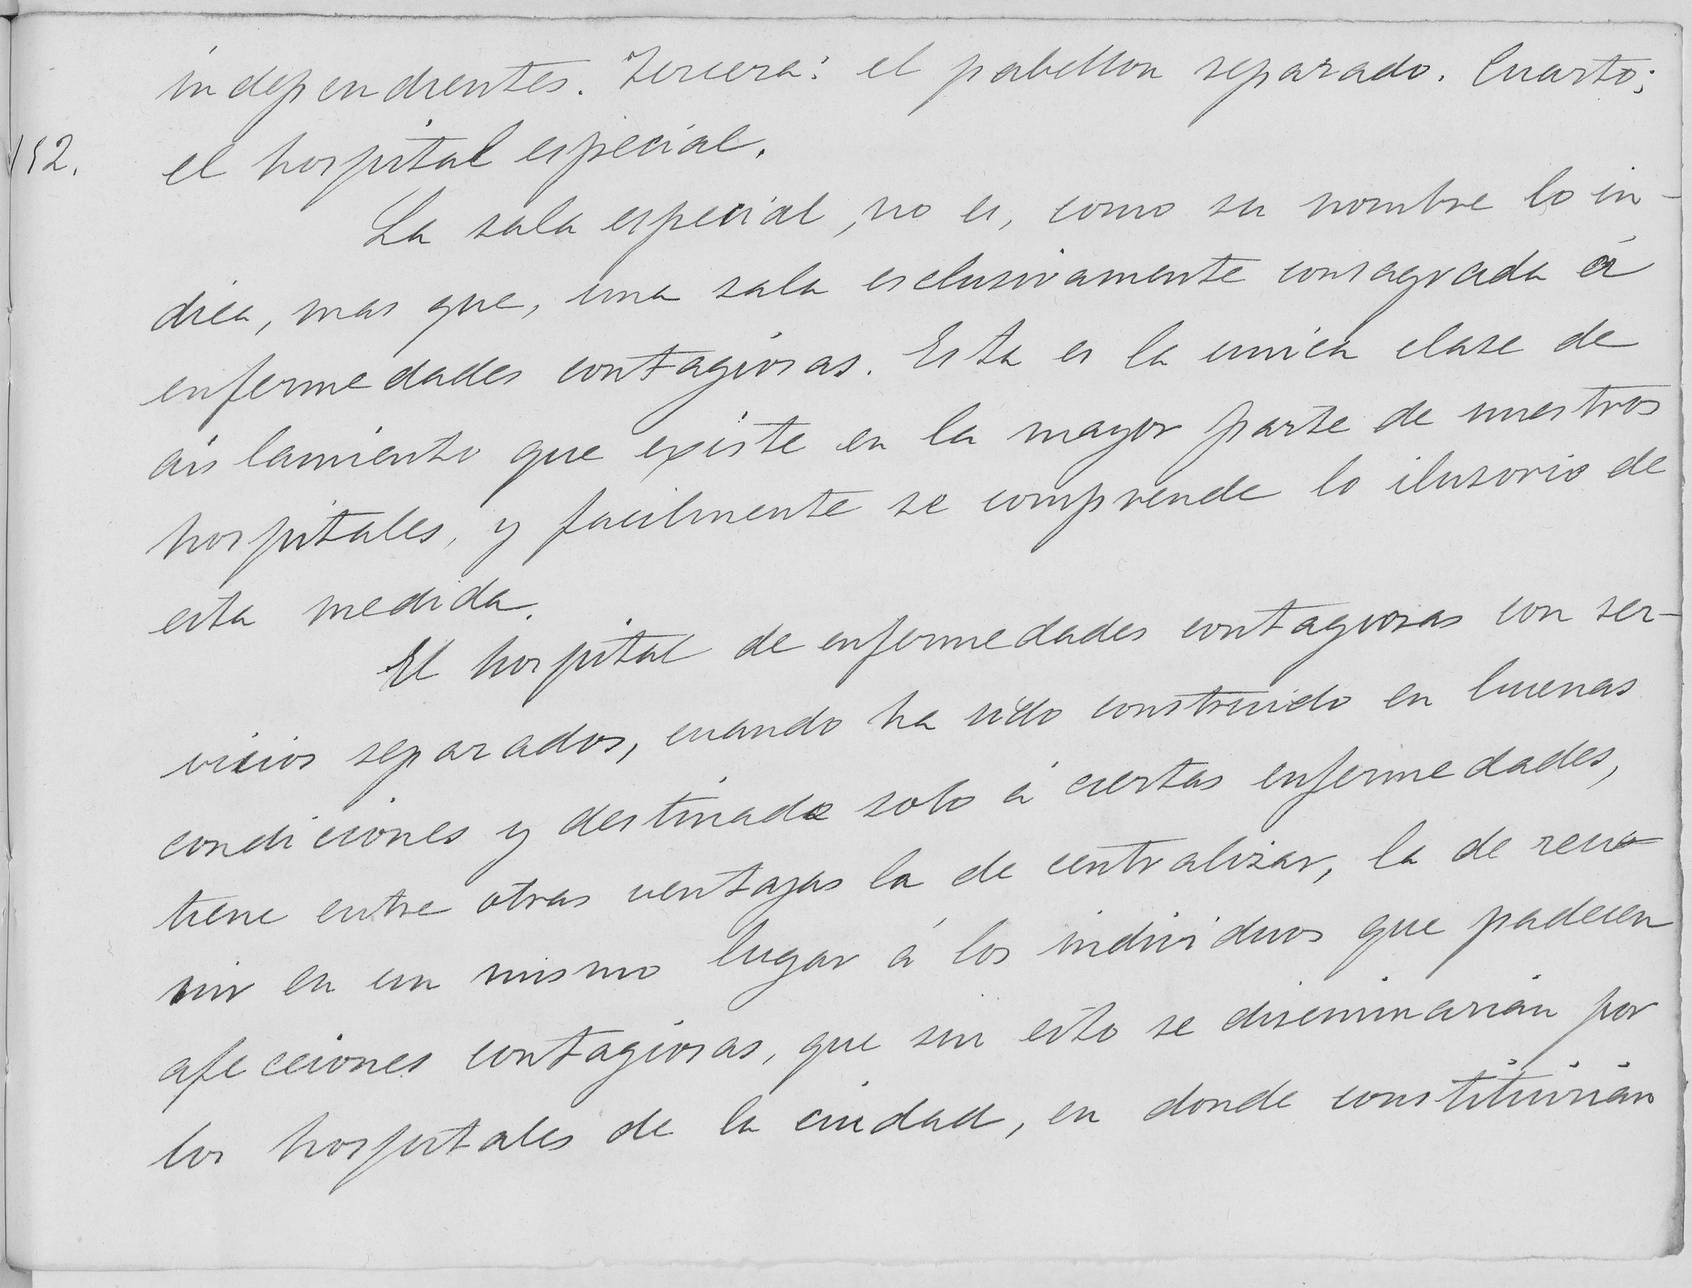 independientes. Tercera: el pabellon separado. Cuarto:
152.
el hospital especial.
La sala especial, no es, como su nombre lo in-
dica, mas que, una sala esclusivamente consagrada á
enfermedades contagiosas. Esta es la unica clase de
aislamiento que existe en la mayor parte de nuestros
hospitales, y facilmente se comprende lo ilusorio de
esta medida.
El hospital de enfermedades contagiosas con ser-
vicios separados, cuando ha sido construido en buenas
condiciones y destinado solo á ciertas enfermedades,
tiene entre otras ventajas la de centralizar, la de reu-
nir en un mismo lugar á los individuos que padecen
afecciones contagiosas, que sin esto se diseminarian por
los hospitales de la ciudad, en donde constituirian